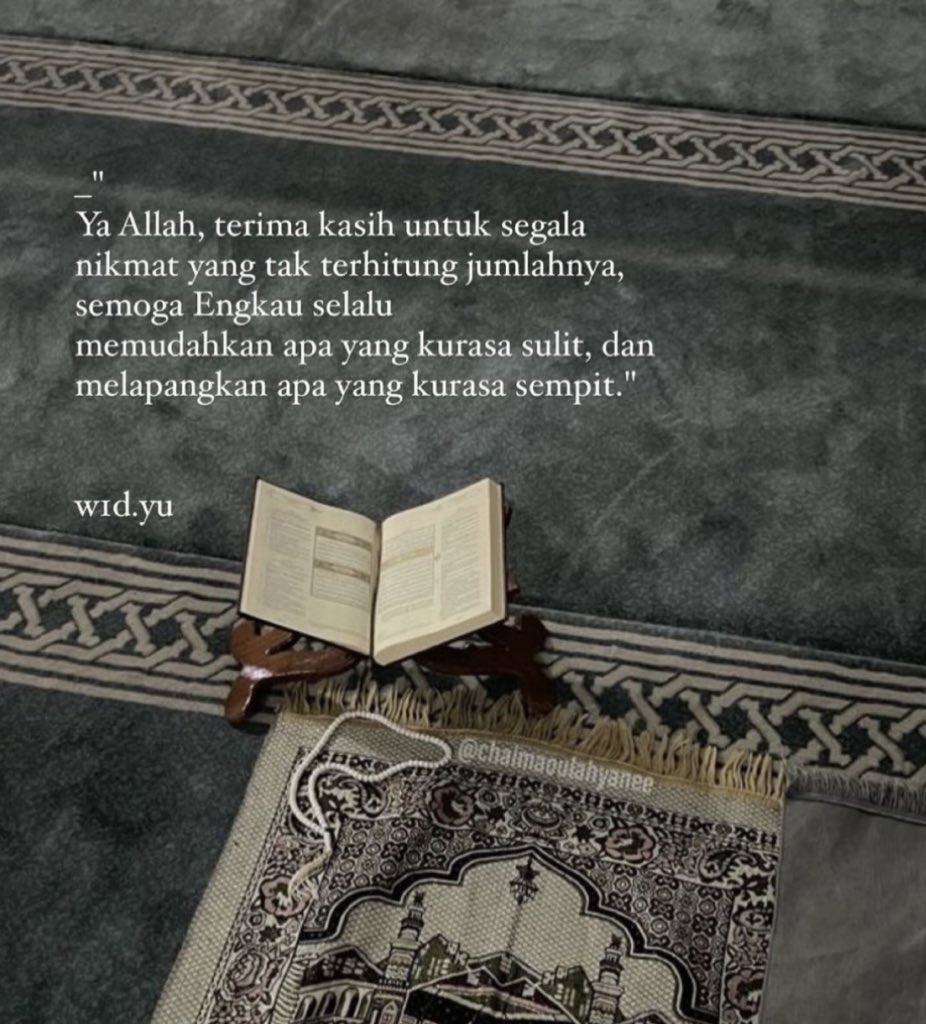 _"
Ya Allah, terima kasih untuk segala
nikmat yang tak terhitung jumlahnya,
semoga Engkau selalu
memudahkan apa yang kurasa sulit, dan
melapangkan apa yang kurasa sempit."
wɪd.yu
@chaimaoulahyanee